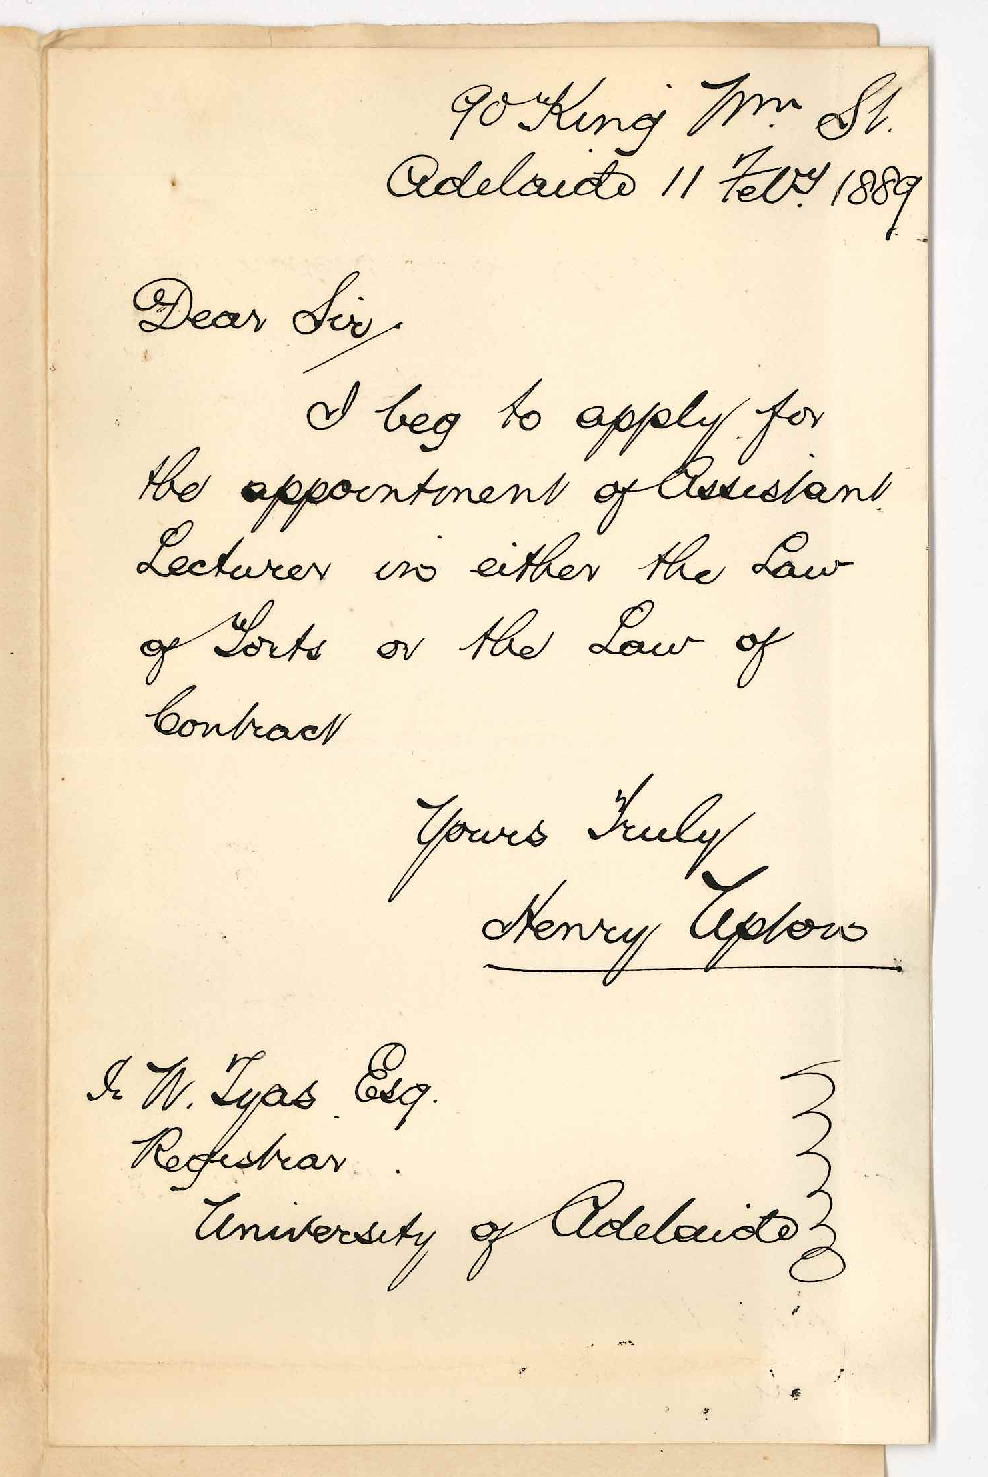 90 King Wm. St.
Adelaide 11 Feby. 1889
Dear Sir,
I beg to apply for
the appointment of Assistant
Lecturer in either the Law
of Torts or the Law of
Contract
Yours Truly
Henry Upton
W. Tyas Esq.
Registrar
University of Adelaide